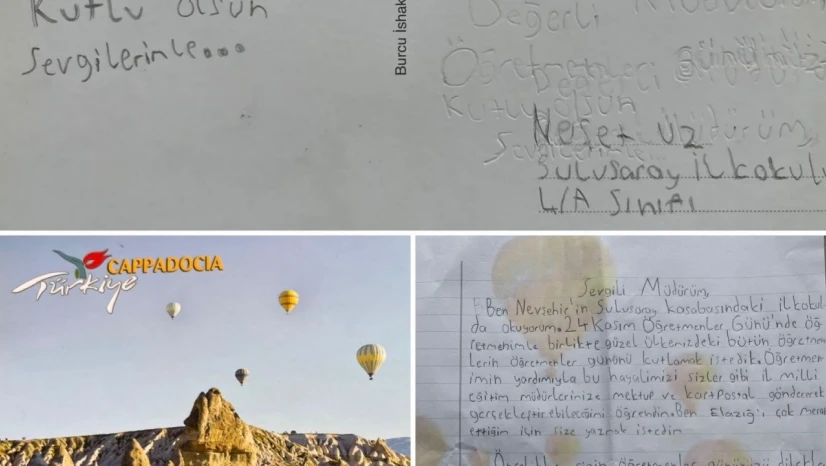 Kutlu olsun
Sevgilerimle...
Burcu İshak
Değerli
Öğretmenler Günümüz
Kutlu olsun
Neşet Uz
Sulusaray İlkokulu
4/A Sınıfı
Türkiye
CAPPADOCIA
Sevgili Müdürüm,
Ben Nevşehir'in Sulusaray kasabasındaki ilkokul
da okuyorum. 24 Kasım Öğretmenler Günü'nde öğ
retmenimle birlikte güzel ülkemizdeki bütün öğretmen
lerin öğretmenler gününü kutlamak istedik. Öğretmen
imin yardımıyla bu hayalimizi sizler gibi il milli
eğitim müdürlerimize mektup ve kartpostal göndererek
gerçekleştirebileceğini öğrendim. Ben Elazığ'ı çok merak
ettiğim için size yazmak istedim